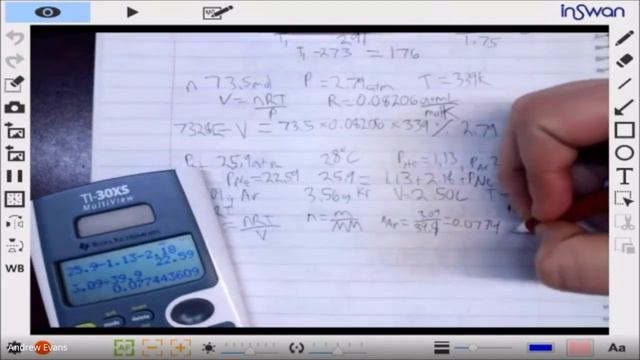 inSwan
T₁ 291 1.75
T₁ -273 = 176
n 73.5mol P = 2.79atm T = 339K
V = nRT/P R = 0.08206 atm L/mol K
V = 73.5 × 0.08206 × 339 / 2.79
25.9atm 28°C P_He = 1.13, P_Ar 2
P_Ne = 22.59 25.9 = 1.13 + 2.18 + P_Ne
Ar 3.56g Kr V = 2.50L T
= nRT/V n = m/MM n_Ar = 3.09/39.9 = 0.0774
TI-30XS
MultiView
TEXAS INSTRUMENTS
25.9-1.13-2.18
22.59
3.09÷39.9
0.077443609
WB
T
Andrew Evans
Aa